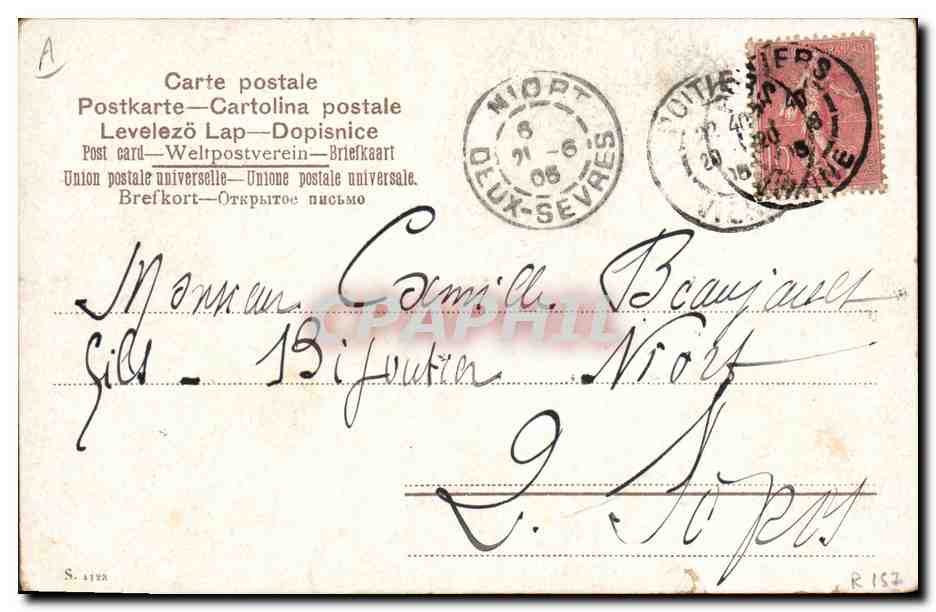 A
Carte postale
Postkarte—Cartolina postale
Levelező Lap—Dopisnice
Post card—Weltpostverein—Briefkaart
Union postale universelle—Unione postale universale.
Brefkort—Открытое письмо
NIORT
6
21 -6
05
DEUX-SEVRES
POITIERS
20
05
VIENNE
Monsieur Camille Beaujault
fils - Bijoutier Niort
2. Sèvres
CPAPHIL
S. 1123
R 157